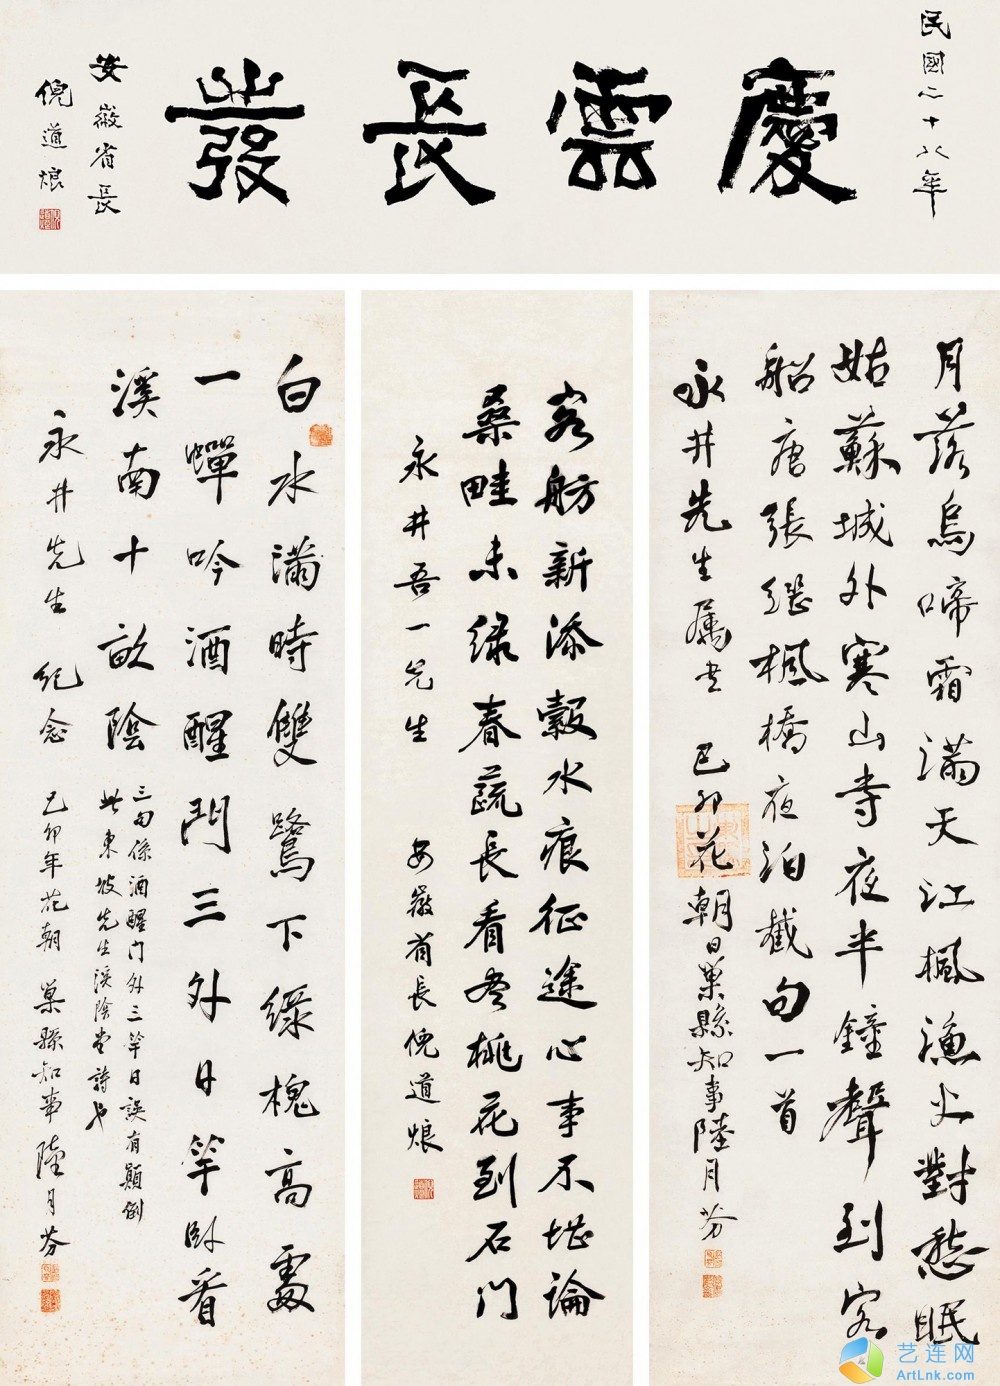 民國二十八年
慶雲長發
安徽省長
倪道烺
月落烏啼霜滿天江楓漁火對愁眠
姑蘇城外寒山寺夜半鐘聲到客
船唐張繼楓橋夜泊截句一首
永井先生属书 己卯花朝日巢縣知事陸月芬
客舫新添縠水痕征途心事不堪論
桑畦未绿春蔬長看尽桃花到石门
永井吾一先生 安徽省長倪道烺
白水滿時雙鷺下綠槐高處
一蟬吟酒醒門三外日竿卧看
溪南十畝陰
三句係酒醒门外三竿日誤有顛倒
此東坡先生溪陰堂詩也
永井先生 纪念 己卯年花朝 巢縣知事陸月芬
艺连网
ArtLnk.com